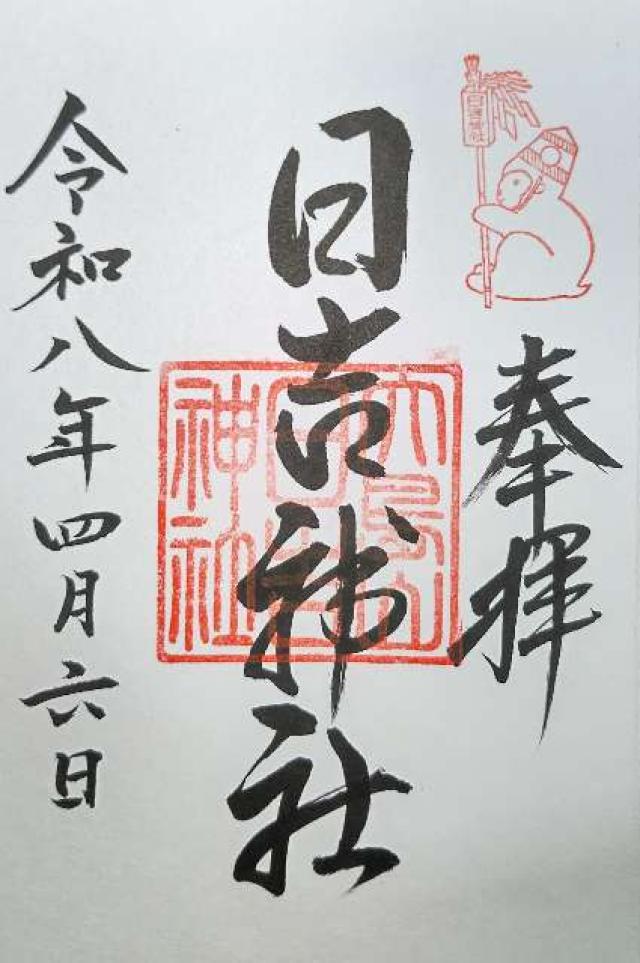 奉拝
日吉神社
大島山日吉神社
令和八年四月六日